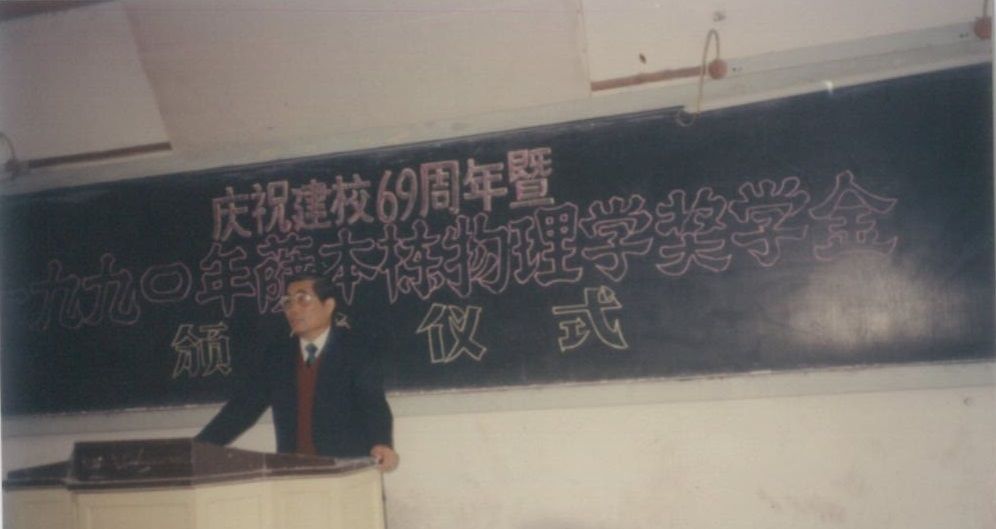 庆祝建校69周年暨
一九九〇年萨本栋物理学奖学金
颁 仪 式